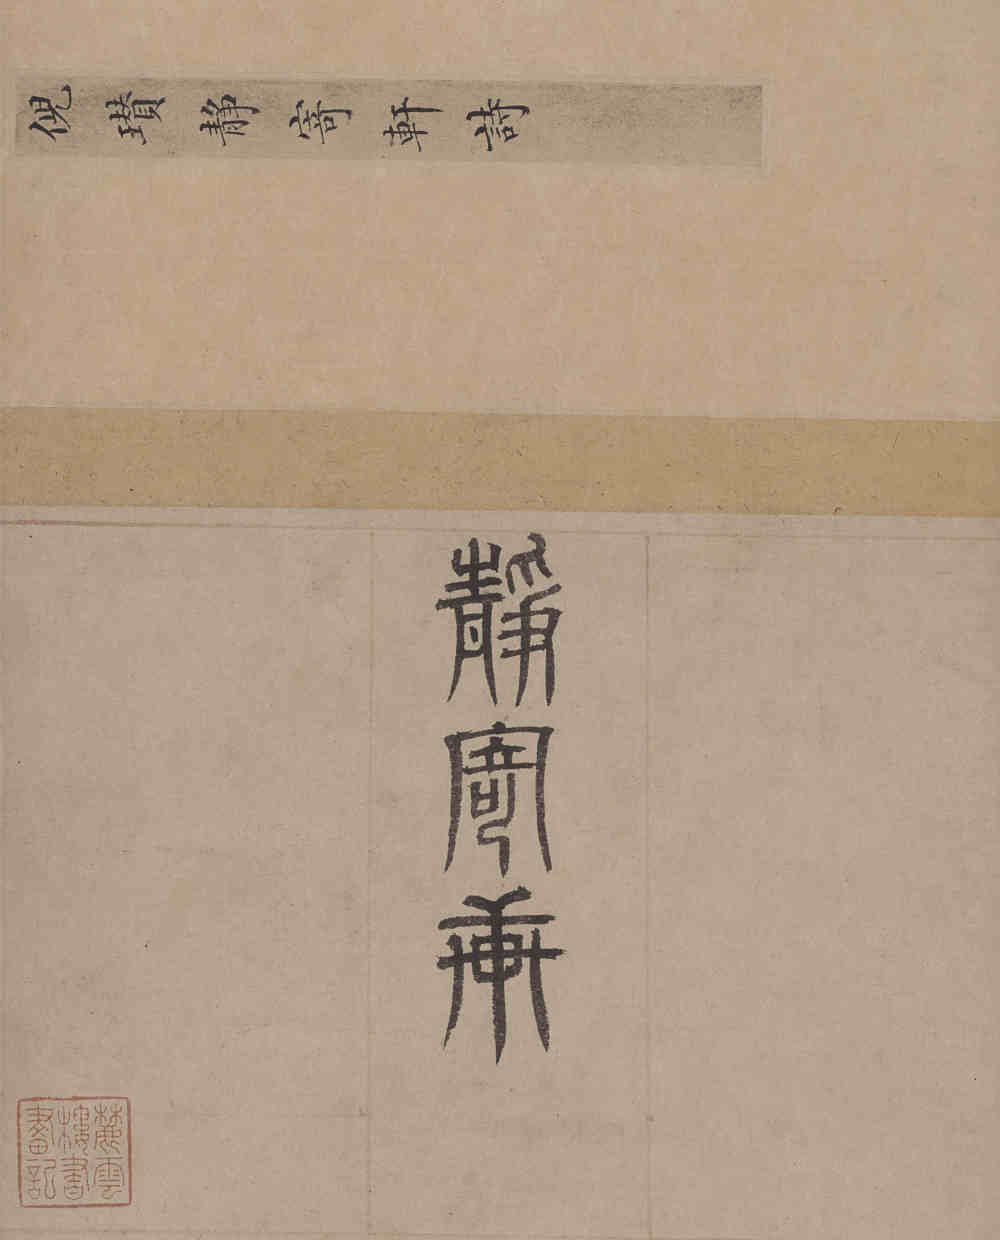 倪瓚静寄軒詩
靜寄軒
麓雲
樓書
畫記